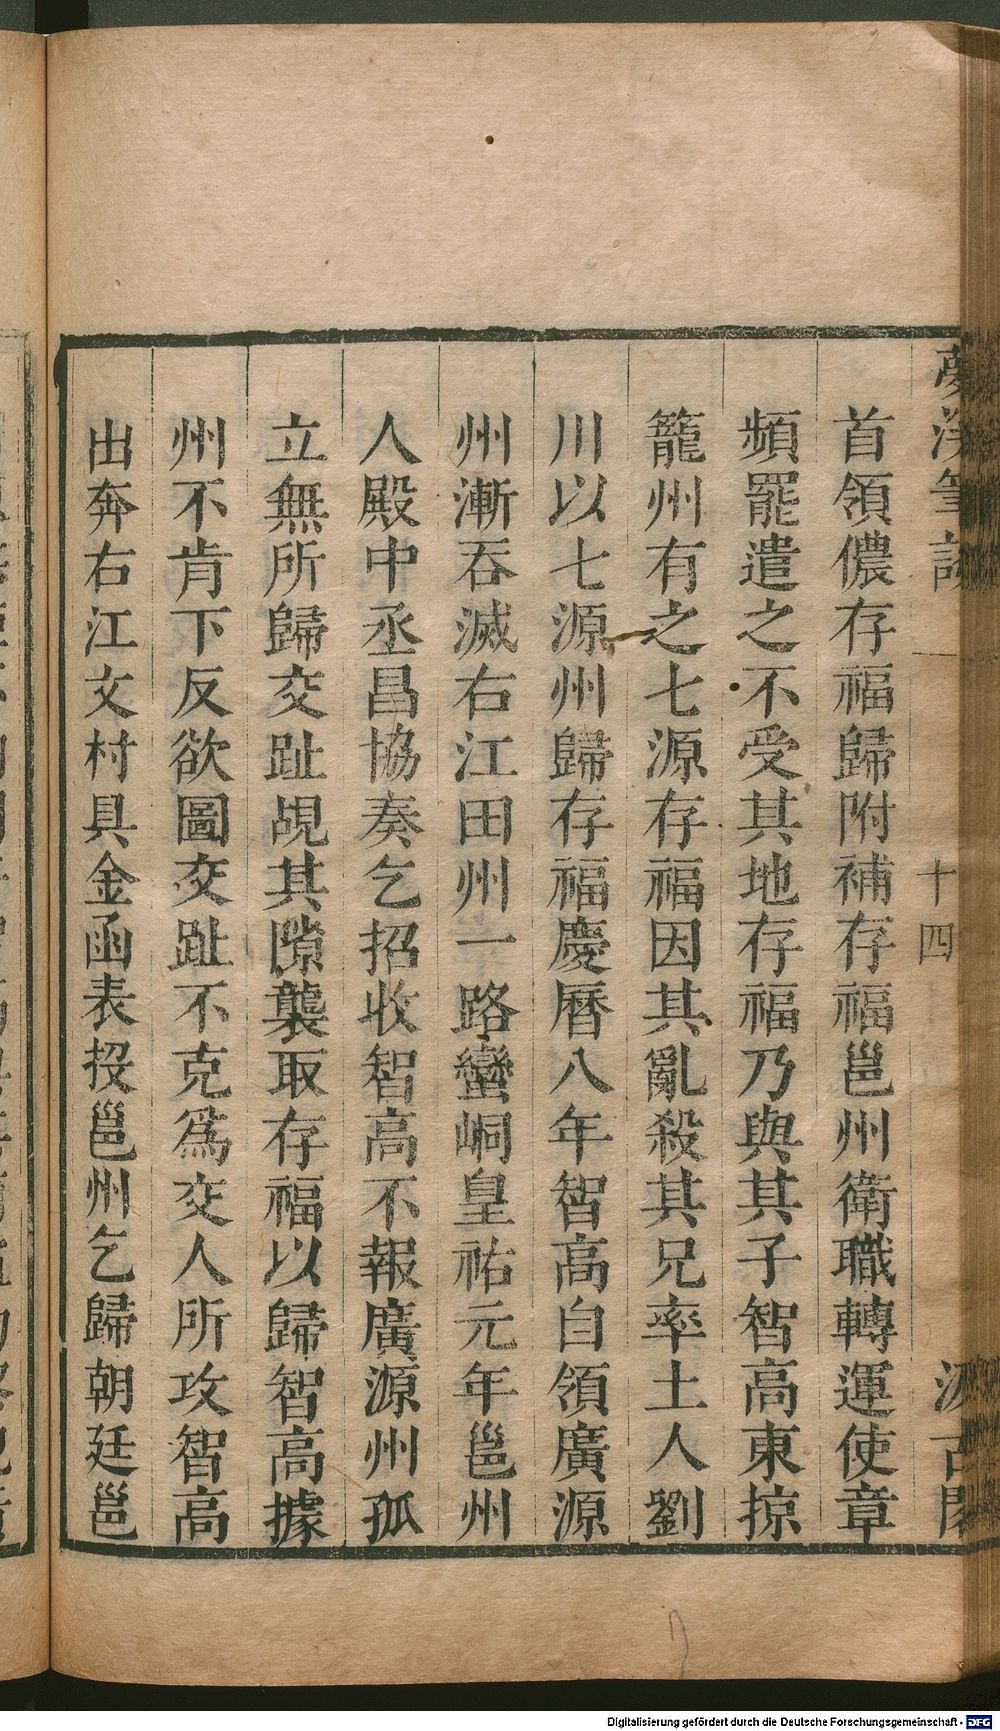 首領儂存福歸附補存福邕州衛職轉運使章
頻罷遣之不受其地存福乃與其子智高東掠
籠州有之七源存福因其亂殺其兄率土人劉
川以七源州歸存福慶曆八年智高自領廣源
州漸吞滅右江田州一路蠻峒皇祐元年邕州
人殿中丞昌協奏乞招收智高不報廣源州孤
立無所歸交趾覘其隙襲取存福以歸智高據
州不肯下反欲圖交趾不克爲交人所攻智高
出奔右江文村具金函表投邕州乞歸朝廷邕
十四
Digitalisierung gefördert durch die Deutsche Forschungsgemeinschaft - DFG